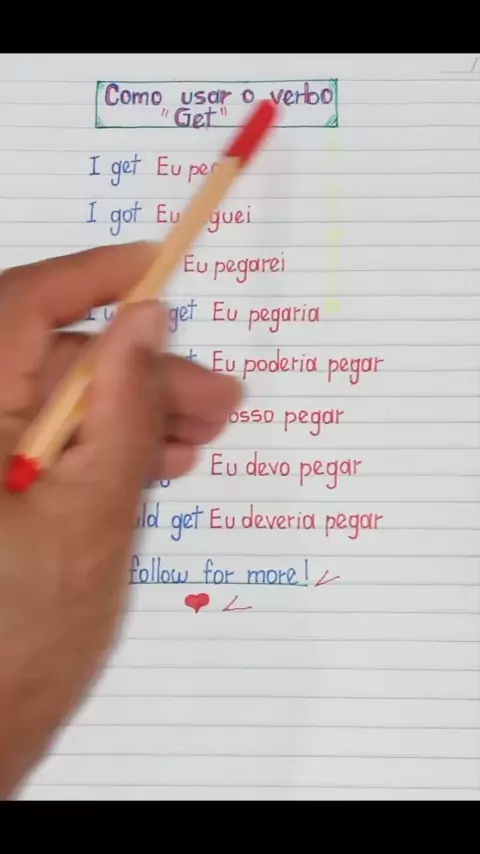 Como usar o verbo
"Get"
I get Eu
I got Eu guei
Eu pegarei
get Eu pegaria
Eu poderia pegar
osso pegar
Eu devo pegar
ld get Eu deveria pegar
follow for more!